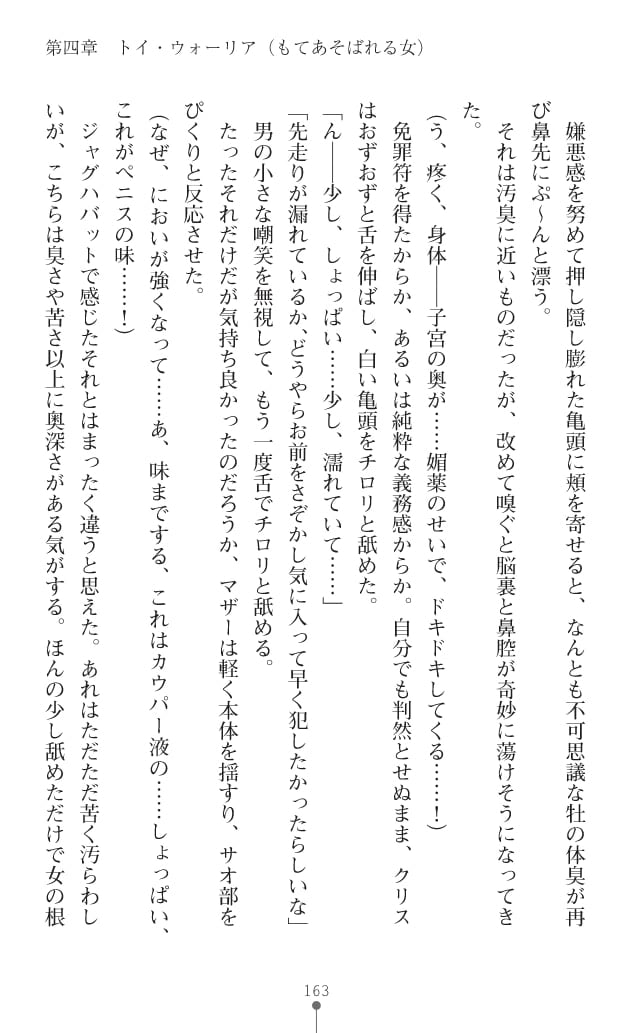 第四章　トイ・ウォーリア（もてあそばれる女）
嫌悪感を努めて押し隠し膨れた亀頭に頬を寄せると、なんとも不可思議な牡の体臭が再
び鼻先にぷ〜んと漂う。
それは汚臭に近いものだったが、改めて嗅ぐと脳裏と鼻腔が奇妙に蕩けそうになってき
た。
（う、疼く、身体――子宮の奥が……媚薬のせいで、ドキドキしてくる……！）
免罪符を得たからか、あるいは純粋な義務感からか。自分でも判然とせぬまま、クリス
はおずおずと舌を伸ばし、白い亀頭をチロリと舐めた。
「ん――少し、しょっぱい……少し、濡れていて……」
「先走りが漏れているか、どうやらお前をさぞかし気に入って早く犯したかったらしいな」
男の小さな嘲笑を無視して、もう一度舌でチロリと舐める。
たったそれだけだが気持ち良かったのだろうか、マザーは軽く本体を揺すり、サオ部を
ぴくりと反応させた。
（なぜ、においが強くなって……あ、味までする、これはカウパー液の……しょっぱい、
これがペニスの味……！）
ジャグハバットで感じたそれとはまったく違うと思えた。あれはただただ苦く汚らわし
いが、こちらは臭さや苦さ以上に奥深さがある気がする。ほんの少し舐めただけで女の根
163